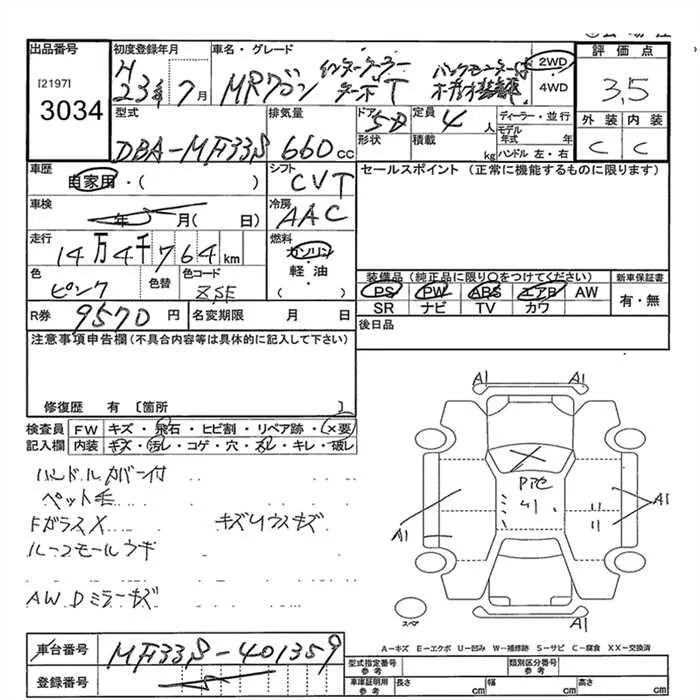 出品番号 初度登録年月 車名・グレード 評価点
[2197]
3034
H23年7月 MRワゴン インタークーラーターボ T バックモニター付オーディオ装着車 2WD 4WD
3,5
型式 排気量 ドア 定員 ディーラー・並行 外装 内装
DBA-MF33S 660cc 5D 4人
形状 積載 kg モデル年式 年 ハンドル 左・右 C C
車歴 シフト セールスポイント (正常に機能するものに限ります)
自家用・( ) CVT
車検 冷房
年 月( 日) AAC
走行 燃料
14万4千764km ガソリン・軽油・( )
色 色替 色コード
ピンク ZSE
装備品(純正品に限り○をつけてください) 新車保証書
PS PW ABS エアB AW 有・無
SR ナビ TV カワ
R券 9570円 名変期限 月 日 後日品
注意事項申告欄(不具合内容等は具体的に記入して下さい)
修復歴 有 [箇所 ]
検査員 FW キズ・飛石・ヒビ割・リペア跡・×要
記入欄 内装 キズ・汚レ・コゲ・穴・スレ・キレ・破レ
ハンドルカバー付
ペット毛
Fガラス X キズ
ルーフモールウキ
AW Dミラーキズ
A1 A1
A1
A1
スペア
A-キズ E-エクボ U-凹み W-補修跡 S-サビ C-腐食 XX-交換済
車台番号 MF33S-401359
登録番号
型式指定番号 参考 類別区分番号 参考
車庫証明用 参考 長さ cm 幅 cm 高さ cm